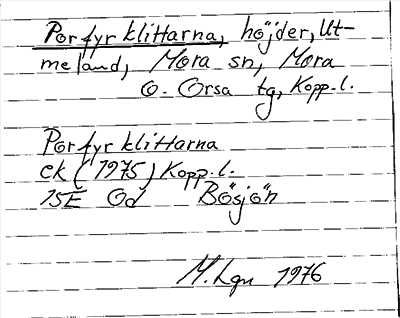 Porfyrklittarna, höjder, Ut-
meland, Mora sn, Mora
o. Orsa tg, Kopp.l.
Porfyrklittarna
ek (1975) Kopp.l.
15E Od Bösjön
M.Lgn 1976